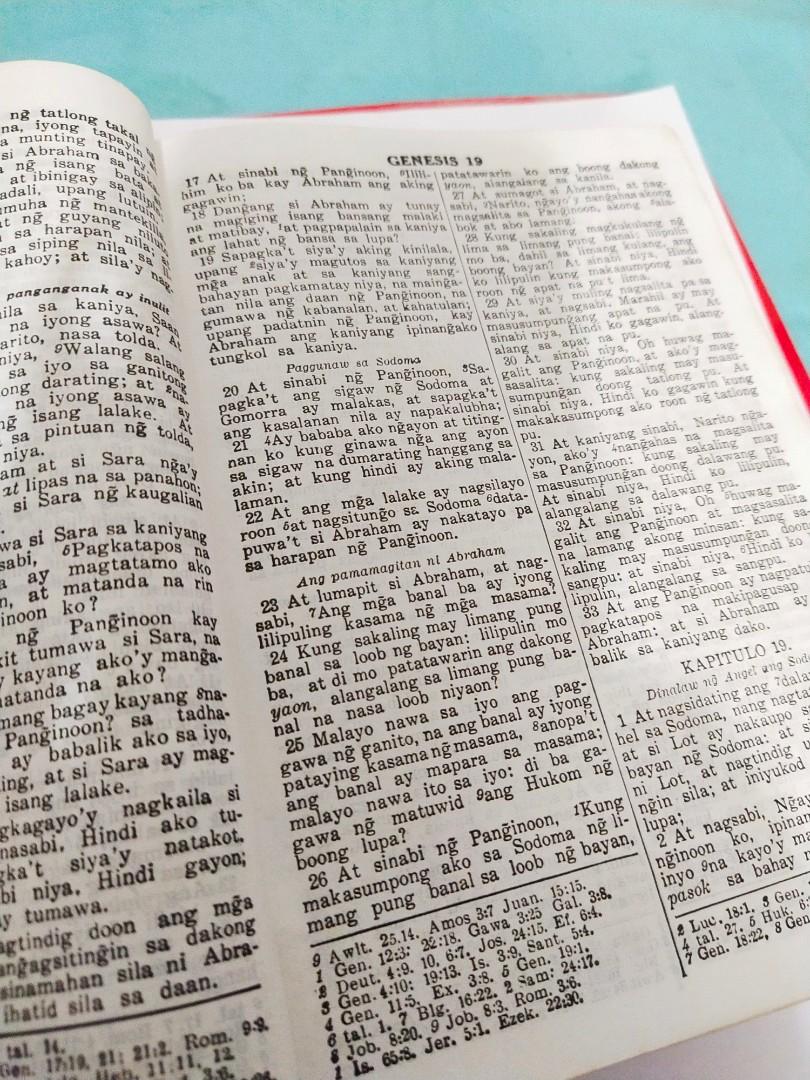 ng̃ tatlong takal ng̃
na, iyong tapayin
a munting tinapay
si Abraham sa baka
a ng̃ isang bata
at ibinigay sa alipin
adali, upang lutuin
muha ng̃ mantekilla
at ng̃ guyang niluto
sa harapan nila: si
sa siping nila sa li
kahoy; at sila'y nag-
panganganak ay inulit
nila sa kaniya, Saan
na iyong asawa? At
arito, nasa tolda.
niya, 9Walang salang
sa iyo sa ganitong
ong darating; at
na iyong asawa ay
ng̃ isang lalake. At
sa pintuan ng̃ tolda,
niya.
am at si Sara ng̃a'y
at lipas na sa panahon;
si Sara ng̃ kaugalian
wa si Sara sa kaniyang
sabi, 6Pagkatapos na
a ay magtatamo ako
n, at matanda na rin
inoon ko?
ng̃ Pang̃inoon kay
kit tumawa si Sara, na
y kayang ako'y mang̃a-
matanda na ako?
mang bagay kayang 8na-
Pang̃inoon? sa tadha-
ay babalik ako sa iyo,
ing, at si Sara ay mag-
isang lalake.
gkagayo'y nagkaila si
nasabi, Hindi ako tu-
gka't siya'y natakot.
bi niya, Hindi gayon;
y tumawa.
agtindig doon ang mg̃a
ang̃agsiting̃in sa dakong
sinamahan sila ni Abra-
ihatid sila sa daan.
tal. 14.
Gen. 17:19, 21; 21:2. Rom. 9:9.
11:11, 12.
3:6.
GENESIS 19
17 At sinabi ng̃ Pang̃inoon, Ilili-
him ko ba kay Abraham ang aking
gagawin;
18 Dang̃ang si Abraham ay tunay
na magiging isang bansang malaki
at matibay, 1at pagpapalain sa kaniya
ang lahat ng̃ bansa sa lupa?
19 Sapagka't siya'y aking kinilala,
upang 2siya'y magutos sa kaniyang
mg̃a anak at sa kaniyang sang-
bahayan pagkamatay niya, na maing̃a-
tan nila ang daan ng̃ Pang̃inoon, na
gumawa ng̃ kabanalan, at kahatulan;
upang padatnin ng̃ Pang̃inoon, kay
Abraham ang kaniyang ipinang̃ako
tungkol sa kaniya.
Paggunaw sa Sodoma
20 At sinabi ng̃ Pang̃inoon, 3Sa-
pagka't ang sigaw ng̃ Sodoma at
Gomorra ay malakas, at sapagka't
ang kasalanan nila ay napakalubha;
21 4Ay bababa ako ng̃ayon at titing-
nan ko kung ginawa ng̃a ang ayon
sa sigaw na dumarating hanggang sa
akin; at kung hindi ay aking mala-
laman.
22 At ang mg̃a lalake ay nagsilayo
roon 5at nagsitung̃o sa Sodoma 6data-
puwa't si Abraham ay nakatayo pa
sa harapan ng̃ Pang̃inoon.
Ang pamamagitan ni Abraham
23 At lumapit si Abraham, at nag-
sabi, 7Ang mg̃a banal ba ay iyong
lilipuling kasama ng̃ mg̃a masama?
24 Kung sakaling may limang pung
banal sa loob ng̃ bayan: lilipulin mo
ba, at di mo patatawarin ang dakong
yaon, alangalang sa limang pung ba-
nal na nasa loob niyaon?
25 Malayo nawa sa iyo ang pag-
gawa ng̃ ganito, na ang banal ay iyong
pataying kasama ng̃ masama, 8anopa't
ang banal ay mapara sa masama;
malayo nawa ito sa iyo: di ba ga-
gawa ng̃ matuwid 9ang Hukom ng̃
boong lupa?
26 At sinabi ng̃ Pang̃inoon, 1Kung
makasumpong ako sa Sodoma ng̃ li-
mang pung banal sa loob ng̃ bayan,
9 Awit. 25.14. Amos 3:7 Juan. 15:15.
1 Gen. 12:3; 22:18. Gawa 3:25 Gal. 3:8.
2 Deut. 4:9. 10, 6:7. Jos. 24:15. Ef. 6:4.
3 Gen. 4:10; 19:13. Is. 3:9, Sant. 5:4.
4 Gen. 11:5. Ex. 3:8. 5 Gen. 19:1.
6 tal. 1. 7 Blg. 16:22. 2 Sam: 24:17.
8 Job. 8:20. 9 Job. 8:3. Rom. 3:6.
1 Is. 65:8. Jer. 5:1. Ezek. 22:30.
patatawarin ko ang boong dakong
yaon, alangalang sa kanila.
27 At sumagot si Abraham, at nag-
sabi, Narito, ng̃ayo'y nang̃ahas akong
magsalita sa Pang̃inoon, akong ala-
bok at abo lamang.
28 Kung sakaling magkukulang ng̃
lima sa limang pung banal: lilipulin
mo ba, dahil sa limang kulang, ang
boong bayan? At sinabi niya, Hindi
ko lilipulin kung makasumpong ako
roon ng̃ apat na pu't lima.
29 At siya'y muling nagsalita pa sa
kaniya, at nagsabi, Marahil ay may
masusumpung̃ang apat na pu. At
sinabi niya, Hindi ko gagawin, alang-
alang sa apat na pu.
30 At sinabi niya, Oh huwag ma-
galit ang Pang̃inoon, at ako'y mag-
sasalita: kung sakaling may masu-
sumpung̃an doong tatlong pu. At
sinabi niya, Hindi ko gagawin kung
makakasumpong ako roon ng̃ tatlong
pu.
31 At kaniyang sinabi, Narito ng̃a-
yon, ako'y 4nang̃ahas na magsalita
sa Pang̃inoon: kung sakaling may
masusumpung̃an doong dalawang pu.
At sinabi niya, Hindi ko lilipulin,
alangalang sa dalawang pu.
32 At sinabi niya, Oh huwag ma-
galit ang Pang̃inoon at magsasalita
na lamang akong minsan: kung sa-
kaling may masusumpung̃an doong
sangpu: at sinabi niya, Hindi ko
lipulin, alangalang sa sangpu.
33 At ang Pang̃inoon ay nagpatu
pagkatapos na makipagusap
Abraham: at si Abraham ay
balik sa kaniyang dako.
KAPITULO 19.
Dinalaw ng̃ Angel ang Sodo
1 At nagsidating ang 7dala
hel sa Sodoma, nang nagta
at si Lot ay nakaupo s
bayan ng̃ Sodoma: at s
ni Lot, at nagtindig
ng̃in sila; at iniyukod
lupa;
2 At nagsabi, Ng̃ay
ng̃inoon ko, ipinam
inyo 9na kayo'y ma
pasok sa bahay n
2 Luc. 18:1. 3 Gen.
4 tal. 27. 5 Huk. 6:
7 Gen. 18:22, 8 Gen